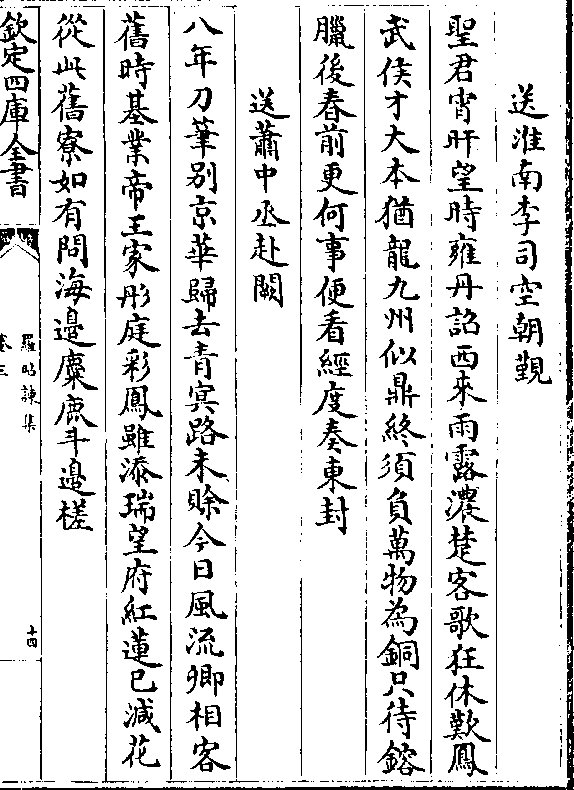 送淮南李司空朝覲
聖君宵旰望時雍丹詔西來雨露濃楚客歌狂休歎鳳
武侯才大本猶龍九州似鼎終須負萬物為銅只待鎔
臘後春前更何事便看經度奏東封
送蕭中丞赴闕
八年刀筆别京華歸去青冥路未賖今日風流卿相客
舊時基業帝王家彤庭彩鳳雖添瑞望府紅蓮已減花
從此舊寮如有問海邉麋鹿斗邉槎
欽定四庫全書
羅昭諫集
卷三
十四